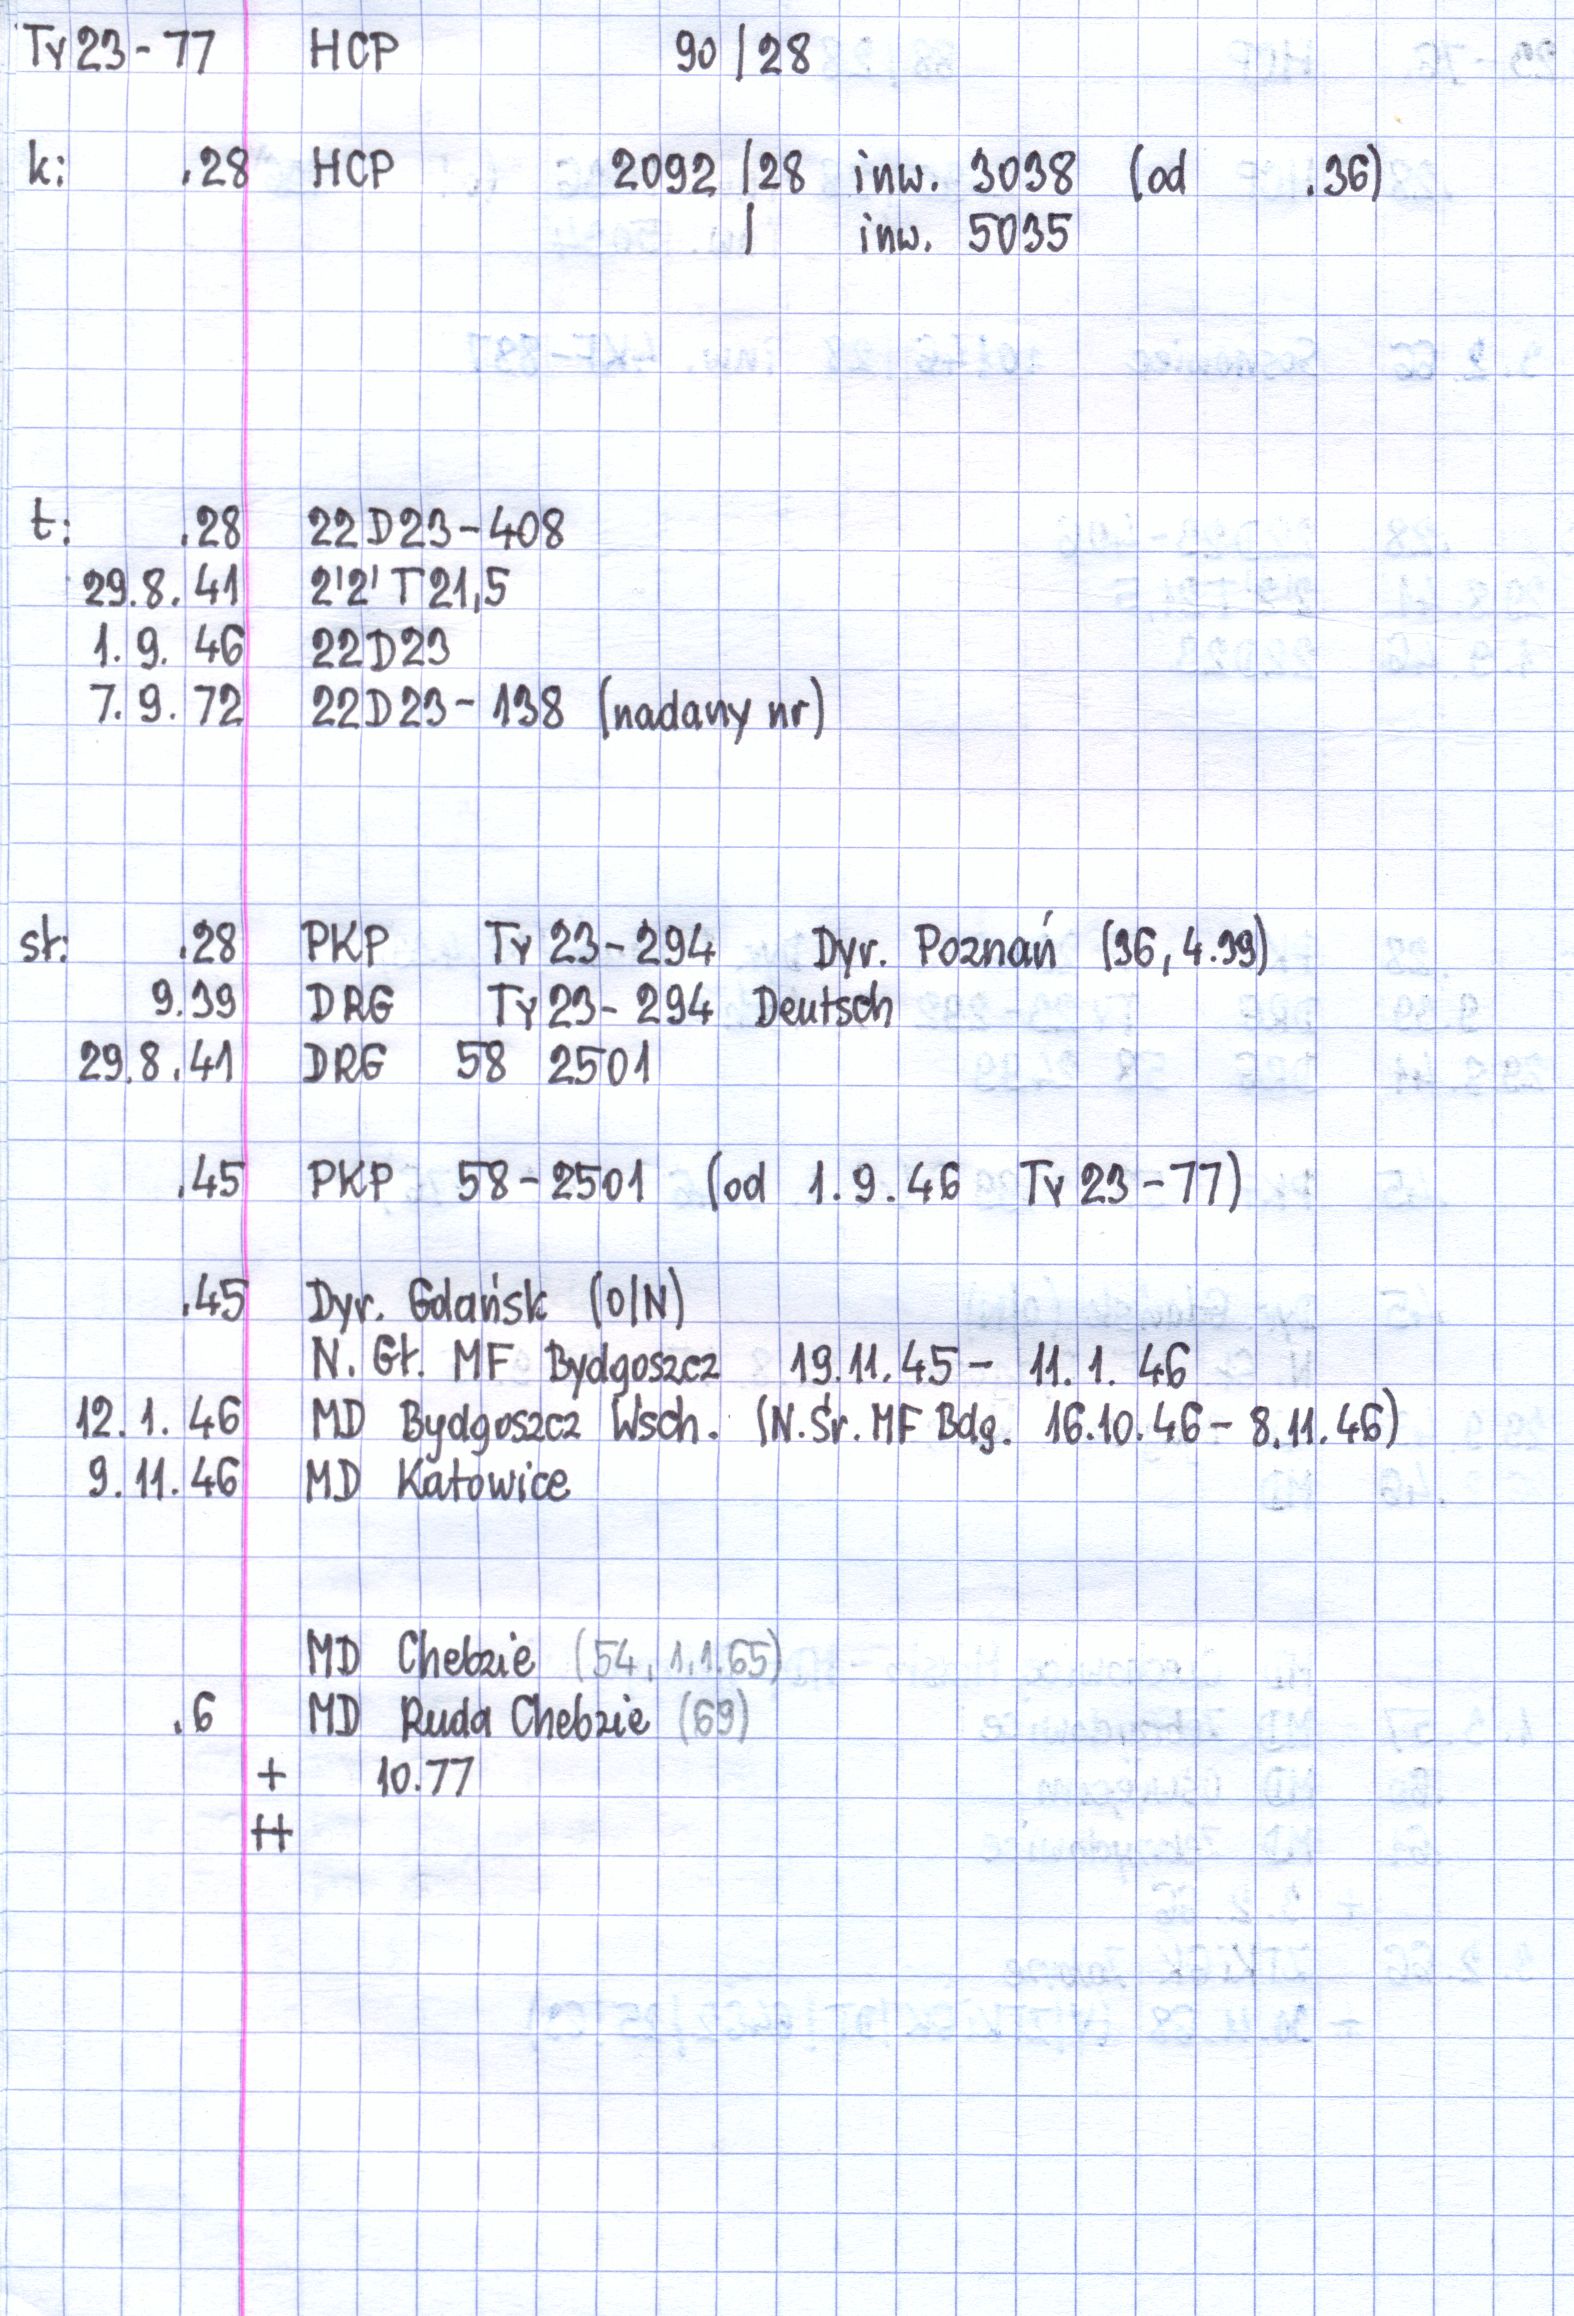 Ty23-77 HCP 90/28
k: .28 HCP 2092/28 inw. 3038 (od .36)
/ inw. 5035
t: .28 22D23-408
29.8.41 2'2'T21,5
1.9.46 22D23
7.9.72 22D23-138 (nadany nr)
sł: .28 PKP Ty23-294 Dyr. Poznań (36, 4.39)
9.39 DRG Ty23-294 Deutsch
29.8.41 DRG 58 2501
.45 PKP 58-2501 (od 1.9.46 Ty23-77)
.45 Dyr. Gdańsk (O/N)
N. Gł. MF Bydgoszcz 19.11.45 - 11.1.46
12.1.46 MD Bydgoszcz Wsch. (N.Śr.MF Bdg. 16.10.46 - 8.11.46)
9.11.46 MD Katowice
MD Chebzie (54, 1.1.65)
.6 MD Ruda Chebzie (69)
+ 10.77
++